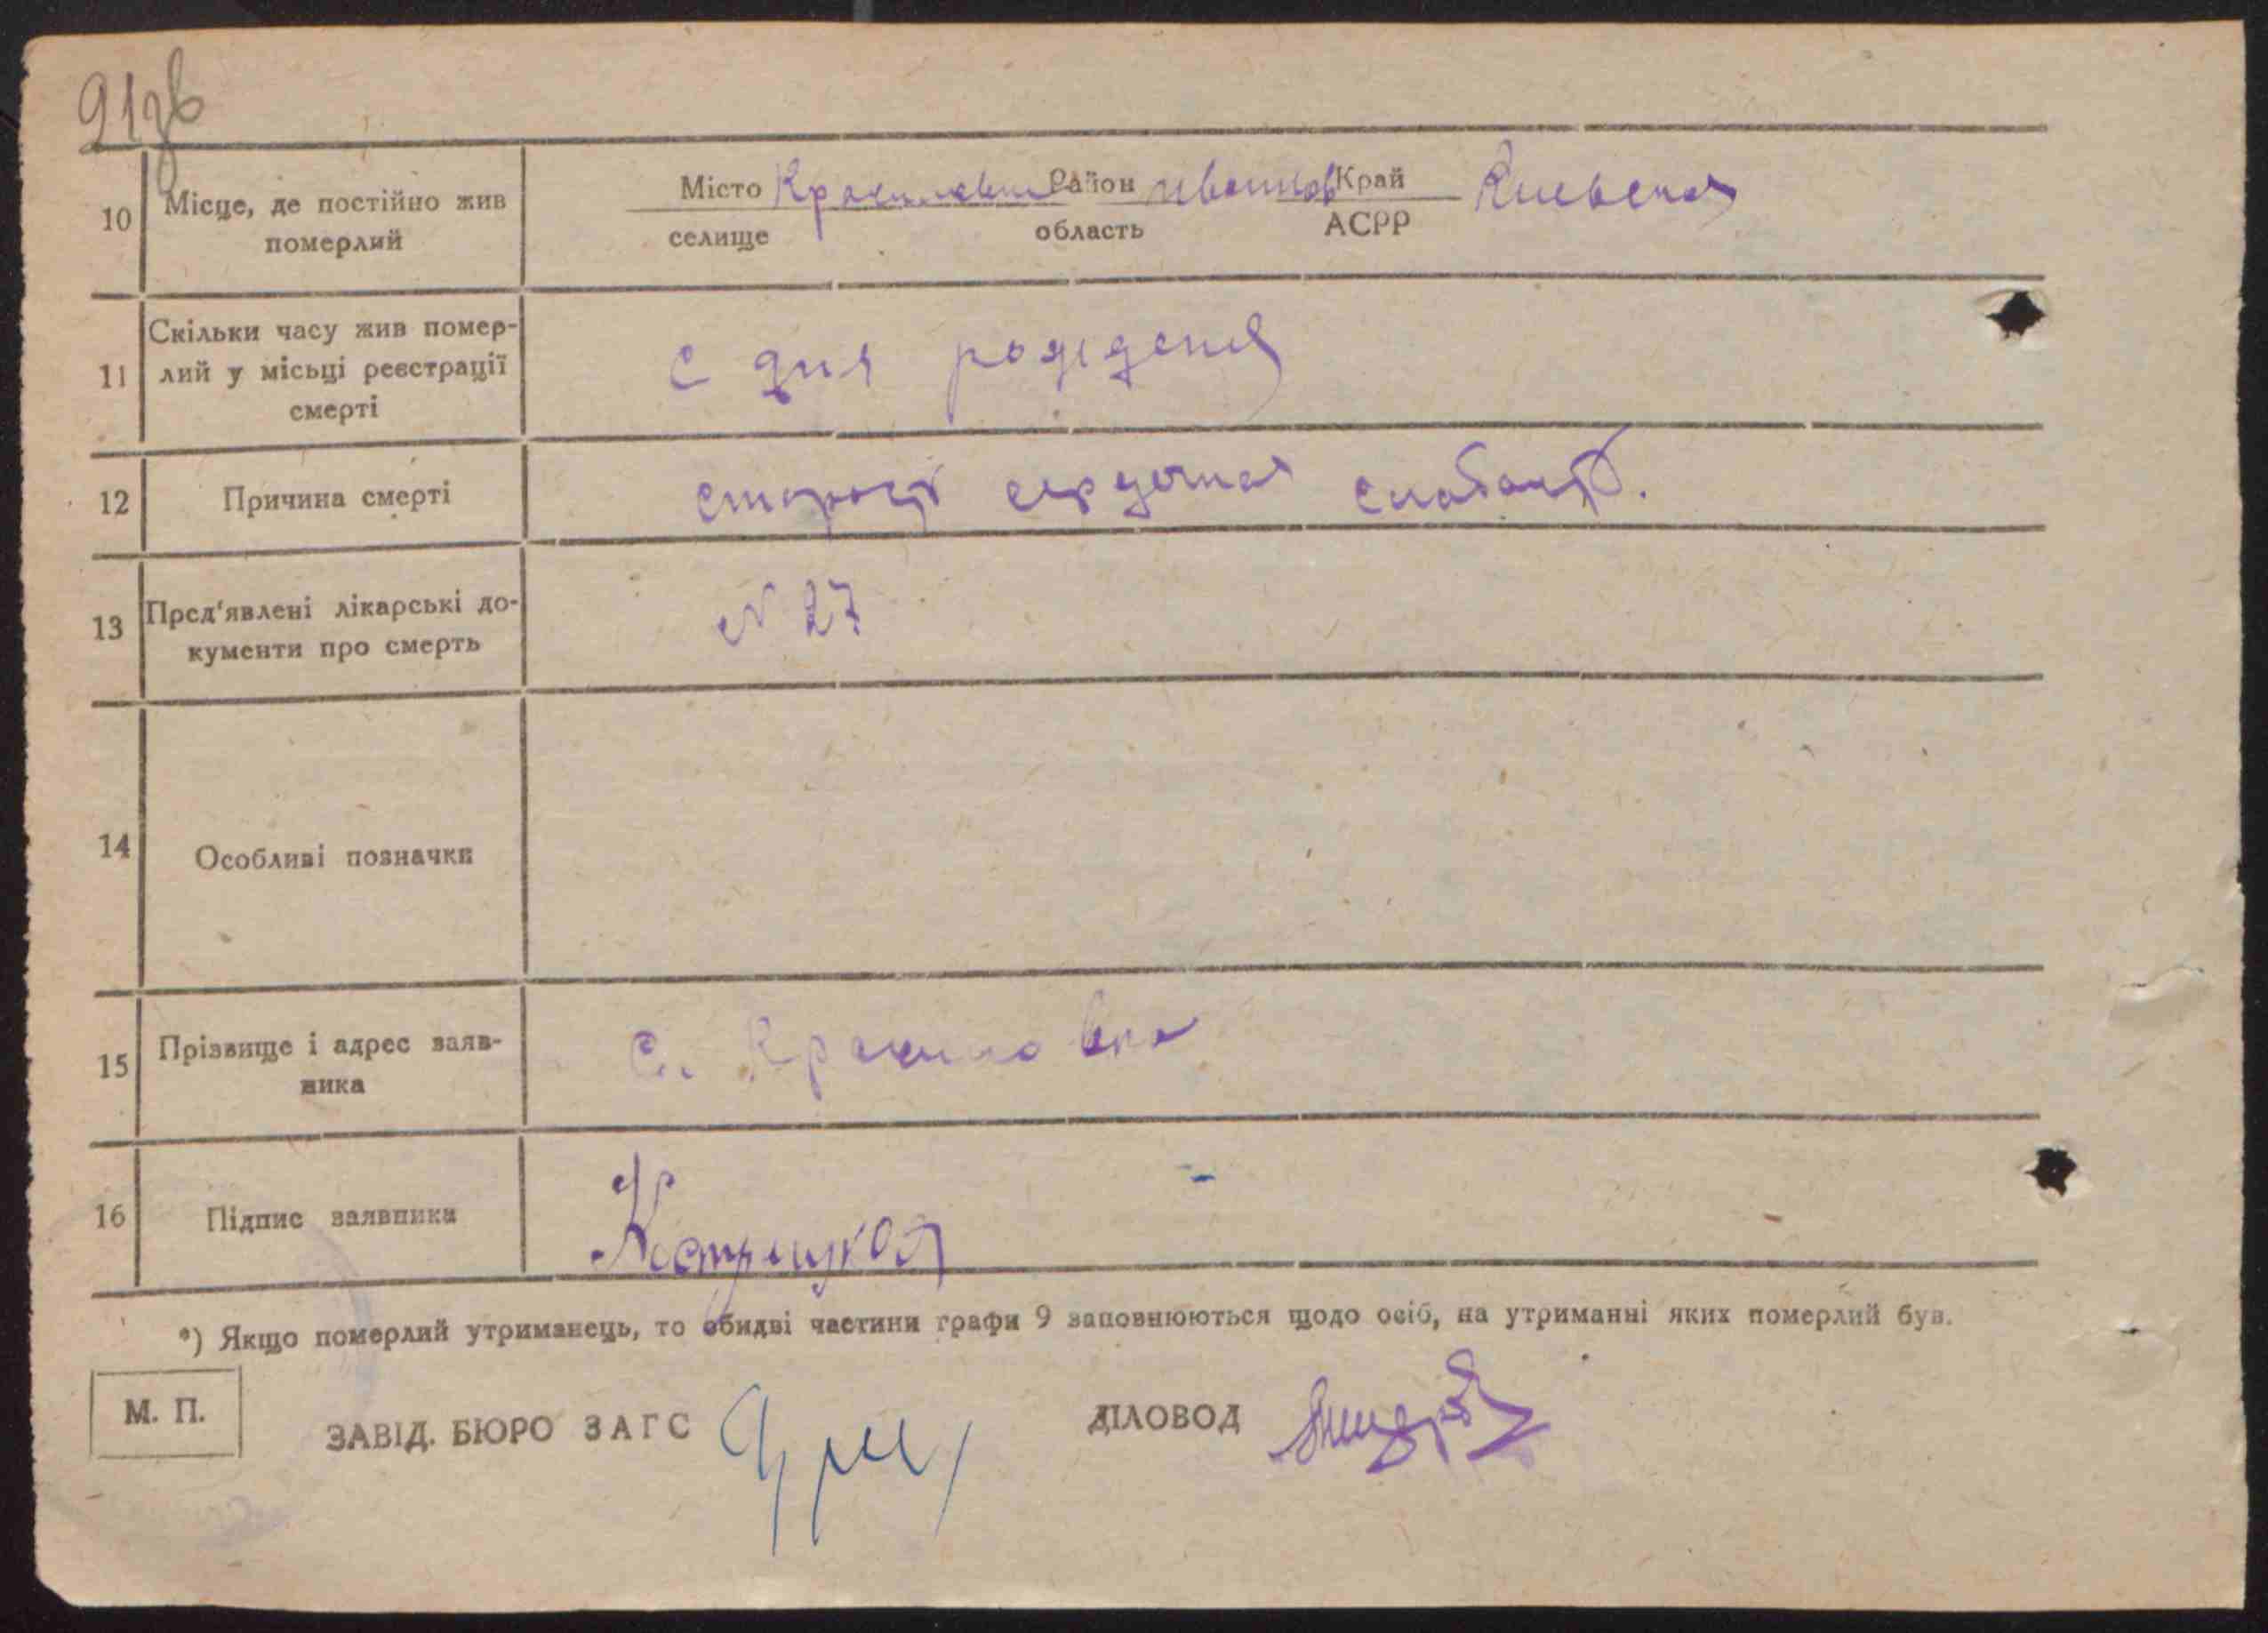 91зв
10 Місце, де постійно жив померлий
Місто Красиловка Район Іванков Край Киевская
селище область АСРР
11 Скільки часу жив помер-
лий у місьці реєстрації
смерті
с дня рождения
12 Причина смерті старость сердечная слабость.
13 Пред'явлені лікарські до-
кументи про смерть
№ 27
14 Особливі позначки
15 Прізвище і адрес заяв-
ника
с. Красиловка
16 Підпис заявника
*) Якщо померлий утриманець, то обидві частини графи 9 заповнюються щодо осіб, на утриманні яких померлий був.
М. П.
ЗАВІД. БЮРО ЗАГС ДІЛОВОД